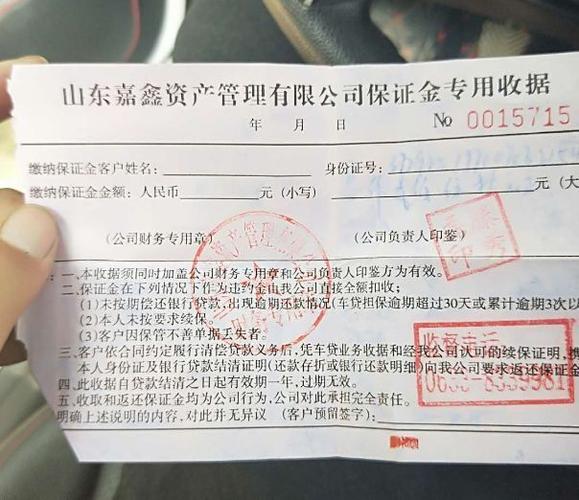 山东嘉鑫资产管理有限公司保证金专用收据
年 月 日 No 0015715
缴纳保证金客户姓名: 身份证号:
缴纳保证金金额: 人民币 元 (小写) 元 (大
(公司财务专用章) (公司负责人印鉴)
一、本收据须同时加盖公司财务专用章和公司负责人印鉴方为有效。
二、保证金在下列情况下作为违约金由我公司直接全额扣收:
(1)未按期偿还银行贷款, 出现逾期还款情况(车贷担保逾期超过30天或累计逾期3次以
(2)本人未按要求续保。
(3)客户因保管不善单据丢失者。
三、客户依合同约定履行清偿贷款义务后, 凭车贷业务收据和经我公司认可的续保证明, 携
本人身份证及银行贷款结清证明(还款存折或银行还款明细)向我公司要求返还保证金
四、此收据自贷款结清之日起有效期一年, 过期无效。
五、收取和返还保证金均为公司行为, 公司对此承担完全责任。
明确上述说明的内容, 对此并无异议 (客户预留签字):
资产管理有限
监督电话
0633-8339981